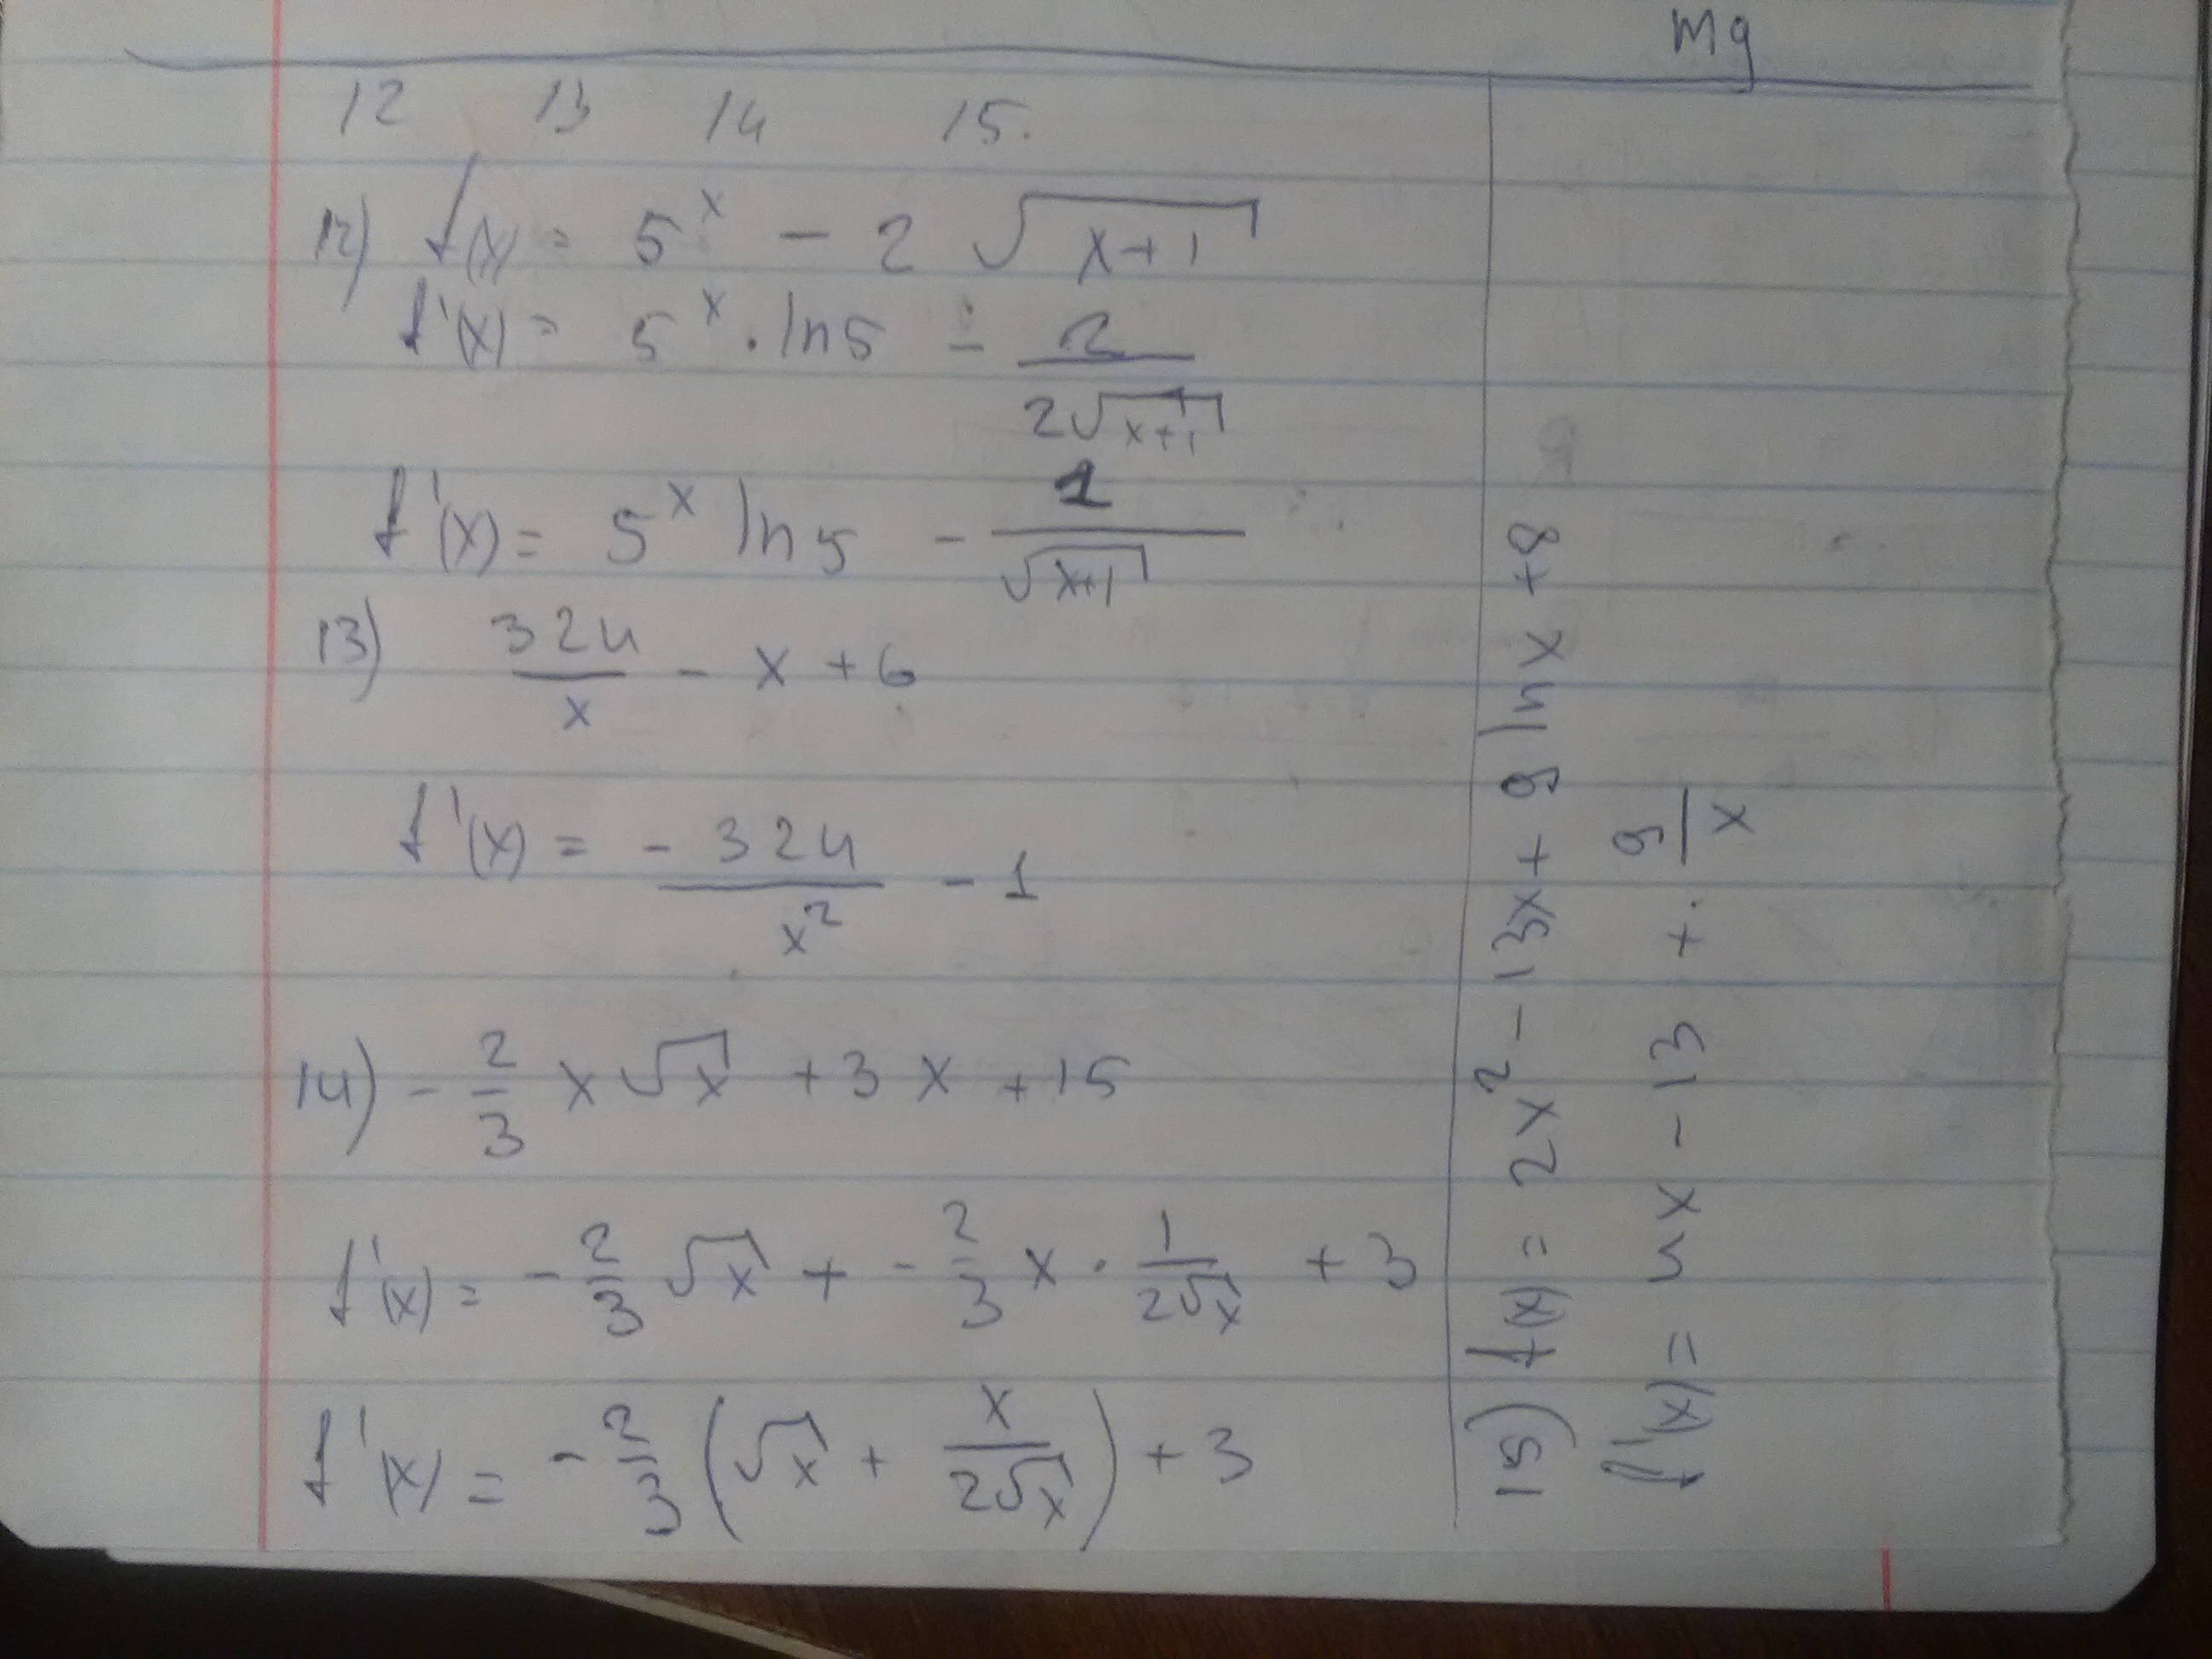 Mg
12 13 14 15.
12) f(x) = 5^x - 2 √(x+1)
f'(x) = 5^x · ln5 - 2/(2√(x+1))
f'(x) = 5^x ln5 - 1/√(x+1)
13) 324/x - x + 6
f'(x) = -324/x² - 1
14) - 2/3 x √x + 3x + 15
f'(x) = - 2/3 √x + - 2/3 x · 1/(2√x) + 3
f'(x) = - 2/3 (√x + x/(2√x)) + 3
15) f(x) = 2x² - 13x + 9 lnx + 8
f'(x) = 4x - 13 + 9/x